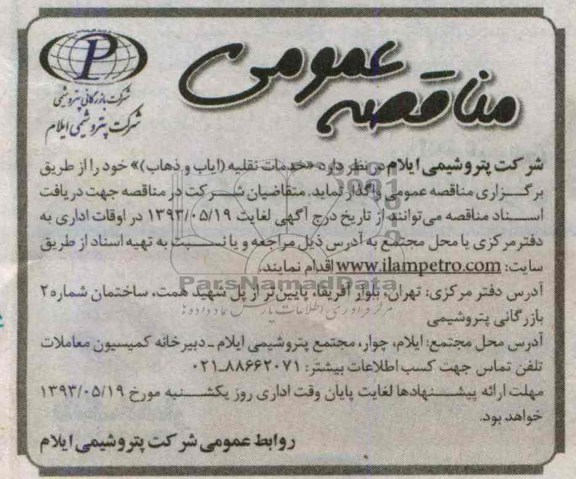 شرکت بازرگانی پتروشیمی
شرکت پتروشیمی ایلام
مناقصه عمومی
شرکت پتروشیمی ایلام در نظر دارد «خدمات نقلیه (ایاب و ذهاب)» خود را از طریق
برگزاری مناقصه عمومی واگذار نماید. متقاضیان شرکت در مناقصه جهت دریافت
اسناد مناقصه می‌توانند از تاریخ درج آگهی لغایت ۱۳۹۳/۰۵/۱۹ در اوقات اداری به
دفتر مرکزی یا محل مجتمع به آدرس ذیل مراجعه و یا نسبت به تهیه اسناد از طریق
سایت: www.ilampetro.com اقدام نمایند.
ParsNamadData
آدرس دفتر مرکزی: تهران، بلوار آفریقا، پایین‌تر از پل شهید همت، ساختمان شماره ۲
بازرگانی پتروشیمی
آدرس محل مجتمع: ایلام، چوار، مجتمع پتروشیمی ایلام ـ دبیرخانه کمیسیون معاملات
تلفن تماس جهت کسب اطلاعات بیشتر: ۸۸۶۶۲۰۷۱ـ۰۲۱
مهلت ارائه پیشنهادها لغایت پایان وقت اداری روز یکشنبه مورخ ۱۳۹۳/۰۵/۱۹
خواهد بود.
روابط عمومی شرکت پتروشیمی ایلام